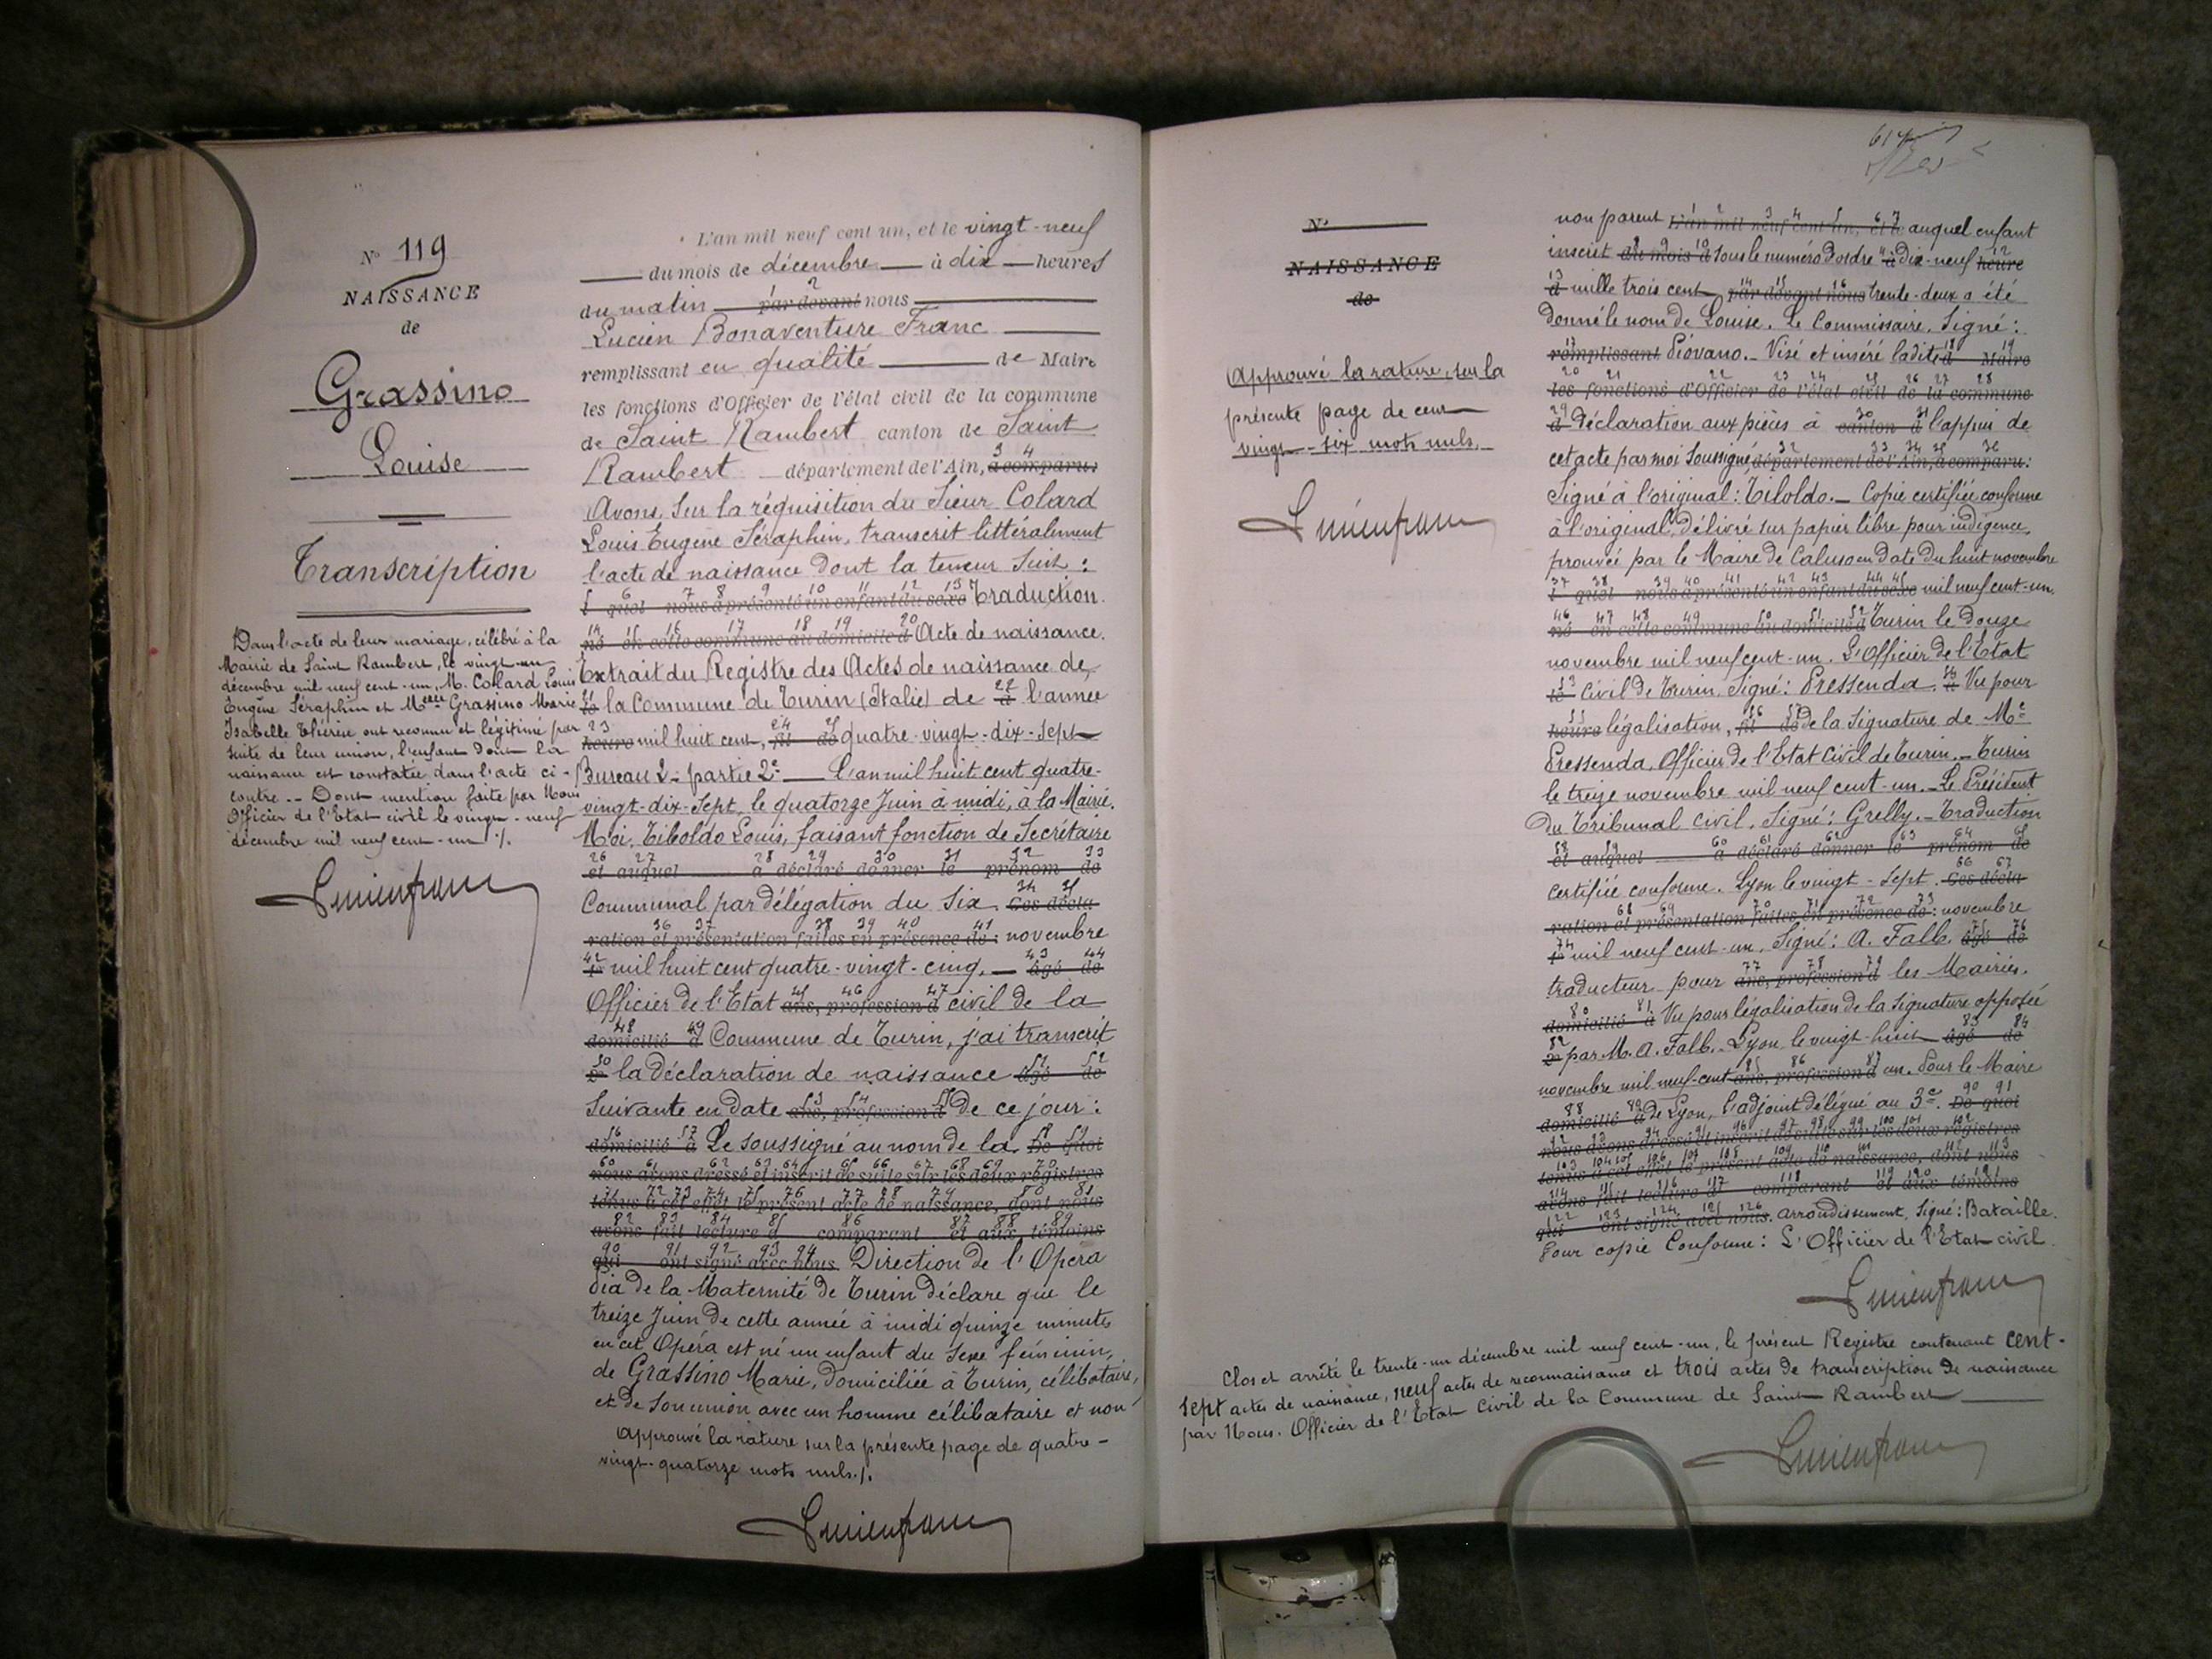 N° 119
NAISSANCE
de
Grassino
Louise
Transcription
Dans l'acte de leur mariage, célébré à la
Mairie de Saint Rambert, le vingt-un
décembre mil neuf cent-un, M. Colard Louis
Eugène Séraphin et Melle Grassino Marie
Isabelle Thérèse ont reconnu et légitimé par
suite de leur union, l'enfant dont la
naissance est constatée dans l'acte ci-
contre. -- Dont mention faite par Nous
Officier de l'Etat civil le vingt-neuf
décembre mil neuf cent-un ./.
Lucienfranc
L'an mil neuf cent un, et le vingt-neuf
du mois de décembre à dix heures
du matin par devant nous
Lucien Bonaventure Franc
remplissant en qualité de Maire
les fonctions d'Officier de l'état civil de la commune
de Saint Rambert canton de Saint
Rambert département de l'Ain, a comparu:
Avons, sur la réquisition du Sieur Colard
Louis Eugène Séraphin, transcrit littéralement
l'acte de naissance dont la teneur suit :
l quel nous a présenté un enfant du sexe Traduction.
né en cette commune au domicile d Acte de naissance.
Extrait du Registre des Actes de naissance de
le la Commune de Turin (Italie) de à l'année
heure mil huit cent, fil de quatre-vingt-dix-sept
Bureau 2- partie 2e L'an mil huit cent quatre-
vingt-dix-sept, le quatorze Juin à midi, à la Mairie.
Moi, Tiboldo Louis, faisant fonction de Secrétaire
et auquel a déclaré donner le prénom de
Communal par délégation du six Ces décla-
ration et présentation faites en présence de : novembre
1° mil huit cent quatre-vingt-cinq. - âgé de
Officier de l'Etat ans, profession d civil de la
domicilié à Commune de Turin, j'ai transcrit
2° la déclaration de naissance âgé de
suivante en date ans, profession d de ce jour :
domicilié à Le soussigné au nom de la De quoi
nous avons dressé et inscrit de suite sur les deux registres
tenus à cet effet le présent acte de naissance, dont nous
avons fait lecture a comparant et aux témoins
qui ont signé avec nous. Direction de l'Opera
Pia de la Maternité de Turin déclare que le
treize Juin de cette année à midi quinze minutes
en cet Opéra est né un enfant du sexe féminin,
de Grassino Marie, domiciliée à Turin, célibataire,
et de son union avec un homme célibataire et non
Approuvé la rature sur la présente page de quatre-
vingt-quatorze mots nuls./.
Lucienfranc
N°
NAISSANCE
de
Approuvé la rature, sur la
présente page de cent
vingt-six mots nuls.
Lucienfranc
617
non parent L'an mil neuf cent un, et le auquel enfant
inscrit du mois d sous le numéro d'ordre à dix-neuf heure
d mille trois cent par devant nous trente-deux a été
donné le nom de Louise. Le Commissaire, Signé :
remplissant Piovano. - Visé et inséré ladite d Maire
les fonctions d'Officier de l'état civil de la commune
d déclaration aux pièces à canton d l'appui de
cet acte par moi soussigné, département de l'Ain, a comparu:
Signé à l'original : Tiboldo. - Copie certifiée conforme
à l'original, délivré sur papier libre pour indigence
prouvée par le Maire de Caluso en date du huit novembre
l quel nous a présenté un enfant du sexe mil neuf cent-un.
né en cette commune au domicile d Turin le douze
novembre mil neuf cent-un. L'Officier de l'Etat
le Civil de Turin, Signé : Pressenda. à Vu pour
heure légalisation, fil de de la signature de Me
Pressenda, Officier de l'Etat Civil de Turin. - Turin
le treize novembre mil neuf cent-un. - Le Président
du Tribunal Civil, Signé : Grelly. - Traduction
et auquel a déclaré donner le prénom de
certifiée conforme. Lyon le vingt-sept. Ces décla-
ration et présentation faites en présence de : novembre
1° mil neuf cent-un. Signé : A. Falb. âgé de
traducteur pour ans, profession d les Mairies.
domicilié à Vu pour légalisation de la signature apposée
2° par M. A. Falb. Lyon le vingt-huit âgé de
novembre mil neuf-cent ans, profession d un. Pour le Maire
domicilié à de Lyon, l'adjoint délégué au 3e. De quoi
nous avons dressé et inscrit de suite sur les deux registres
tenus à cet effet le présent acte de naissance, dont nous
avons fait lecture a comparant et aux témoins
qui ont signé avec nous. arrondissement, signé : Bataille.
Pour copie Conforme : L'Officier de l'Etat civil
Lucienfranc
Clos et arrêté le trente-un décembre mil neuf cent-un, le présent Registre contenant cent-
sept actes de naissance, neuf actes de reconnaissance et trois actes de transcription de naissance
par Nous, Officier de l'Etat Civil de la Commune de Saint Rambert
Lucienfranc